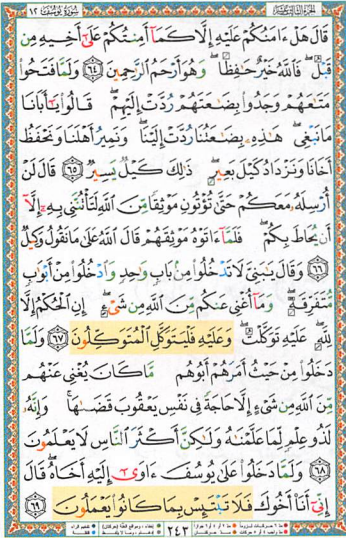 سورة يوسف ١٢
الجزء الثالث عشر
قَالَ هَلْ ءَامَنُكُمْ عَلَيْهِ إِلَّا كَمَآ أَمِنتُكُمْ عَلَىٰٓ أَخِيهِ مِن
قَبْلُ فَٱللَّهُ خَيْرٌ حَـٰفِظًا وَهُوَ أَرْحَمُ ٱلرَّٰحِمِينَ ٦٤ وَلَمَّا فَتَحُوا۟
مَتَـٰعَهُمْ وَجَدُوا۟ بِضَـٰعَتَهُمْ رُدَّتْ إِلَيْهِمْ قَالُوا۟ يَـٰٓأَبَانَا
مَا نَبْغِى هَـٰذِهِۦ بِضَـٰعَتُنَا رُدَّتْ إِلَيْنَا وَنَمِيرُ أَهْلَنَا وَنَحْفَظُ
أَخَانَا وَنَزْدَادُ كَيْلَ بَعِيرٍ ذَٰلِكَ كَيْلٌ يَسِيرٌ ٦٥ قَالَ لَنْ
أُرْسِلَهُۥ مَعَكُمْ حَتَّىٰ تُؤْتُونِ مَوْثِقًا مِّنَ ٱللَّهِ لَتَأْتُنَّنِى بِهِۦٓ إِلَّآ
أَن يُحَاطَ بِكُمْ فَلَمَّآ ءَاتَوْهُ مَوْثِقَهُمْ قَالَ ٱللَّهُ عَلَىٰ مَا نَقُولُ وَكِيلٌ
٦٦ وَقَالَ يَـٰبَنِىَّ لَا تَدْخُلُوا۟ مِنۢ بَابٍ وَٰحِدٍ وَٱدْخُلُوا۟ مِنْ أَبْوَٰبٍ
مُّتَفَرِّقَةٍ وَمَآ أُغْنِى عَنكُم مِّنَ ٱللَّهِ مِن شَىْءٍ إِنِ ٱلْحُكْمُ إِلَّا
لِلَّهِ عَلَيْهِ تَوَكَّلْتُ وَعَلَيْهِ فَلْيَتَوَكَّلِ ٱلْمُتَوَكِّلُونَ ٦٧ وَلَمَّا
دَخَلُوا۟ مِنْ حَيْثُ أَمَرَهُمْ أَبُوهُم مَّا كَانَ يُغْنِى عَنْهُم
مِّنَ ٱللَّهِ مِن شَىْءٍ إِلَّا حَاجَةً فِى نَفْسِ يَعْقُوبَ قَضَىٰهَا وَإِنَّهُۥ
لَذُو عِلْمٍ لِّمَا عَلَّمْنَـٰهُ وَلَـٰكِنَّ أَكْثَرَ ٱلنَّاسِ لَا يَعْلَمُونَ
٦٨ وَلَمَّا دَخَلُوا۟ عَلَىٰ يُوسُفَ ءَاوَىٰٓ إِلَيْهِ أَخَاهُ قَالَ
إِنِّىٓ أَنَا۠ أَخُوكَ فَلَا تَبْتَئِسْ بِمَا كَانُوا۟ يَعْمَلُونَ ٦٩
٢٤٣